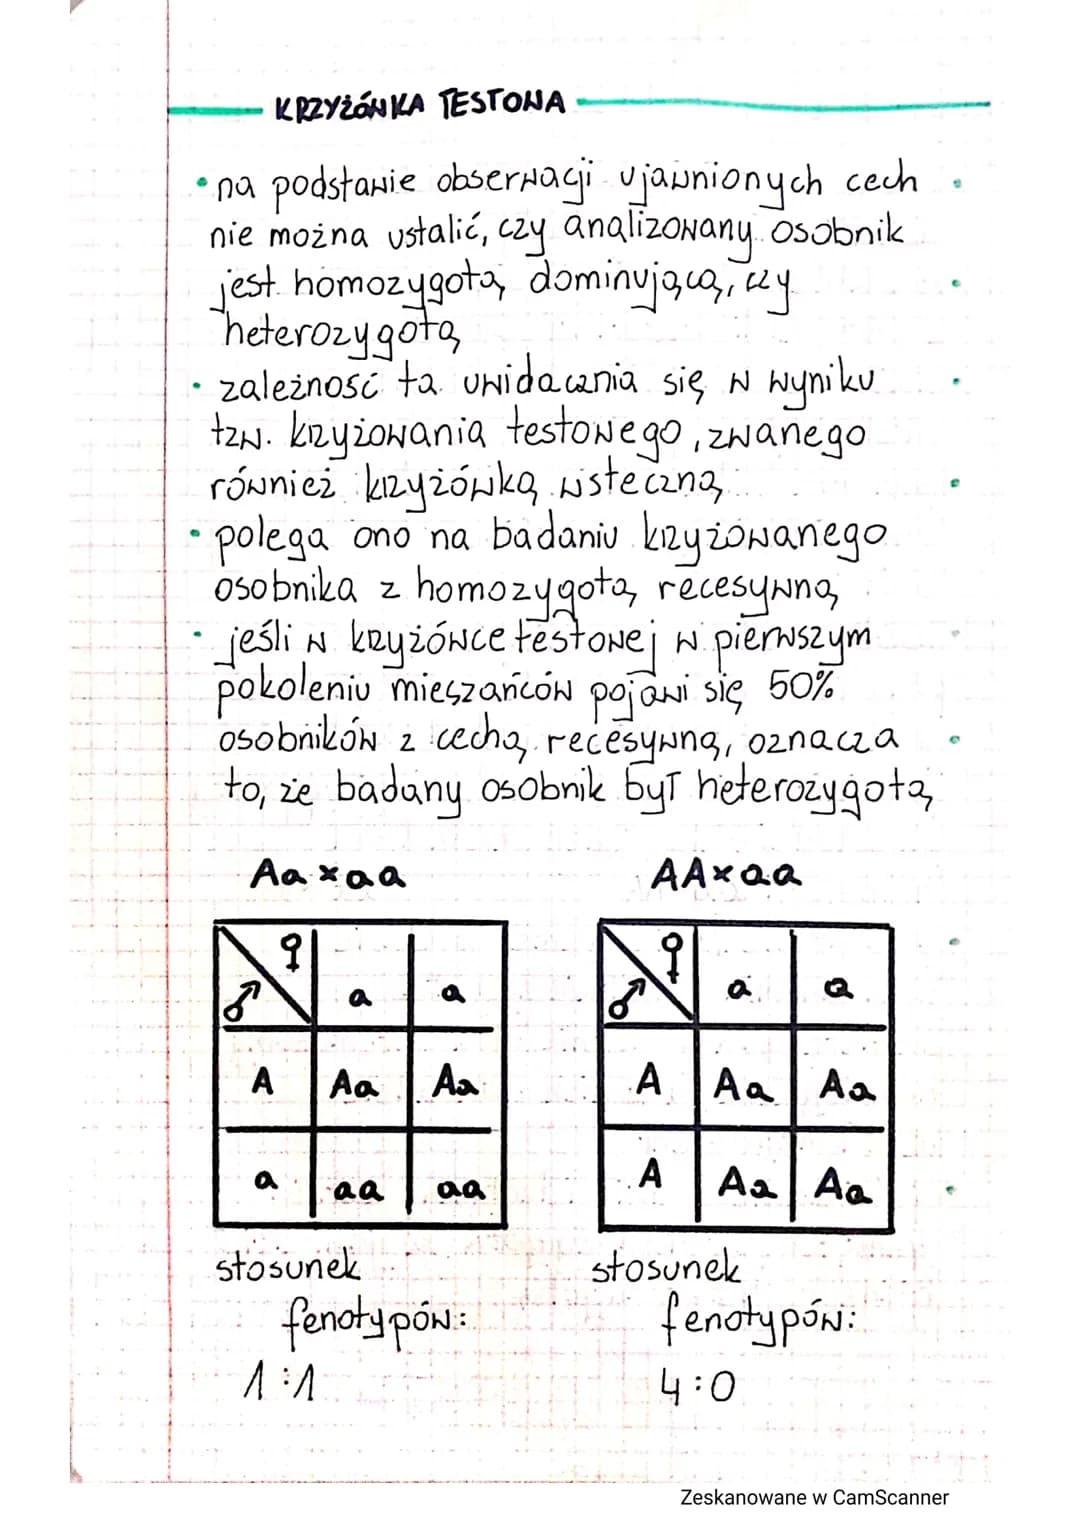 KRZYŻÓWKA TESTOWA
• na podstawie obserwacji ujawnionych cech
nie można ustalić, czy analizowany osobnik
jest homozygotą dominującą, czy
heterozygotą
• zależność ta uwidacznia się w wyniku
tzw. krzyżowania testowego, zwanego
również krzyżówką wsteczną
• polega ono na badaniu krzyżowanego
osobnika z homozygotą recesywną
• jeśli w krzyżówce testowej w pierwszym
pokoleniu mieszańców pojawi się 50%
osobników z cechą recesywną, oznacza
to, że badany osobnik był heterozygotą
Aa x aa
♀ ♂ a a
A Aa Aa
a aa aa
stosunek
fenotypów:
1:1
AA x aa
♀ ♂ a a
A Aa Aa
A Aa Aa
stosunek
fenotypów:
4:0
Zeskanowane w CamScanner